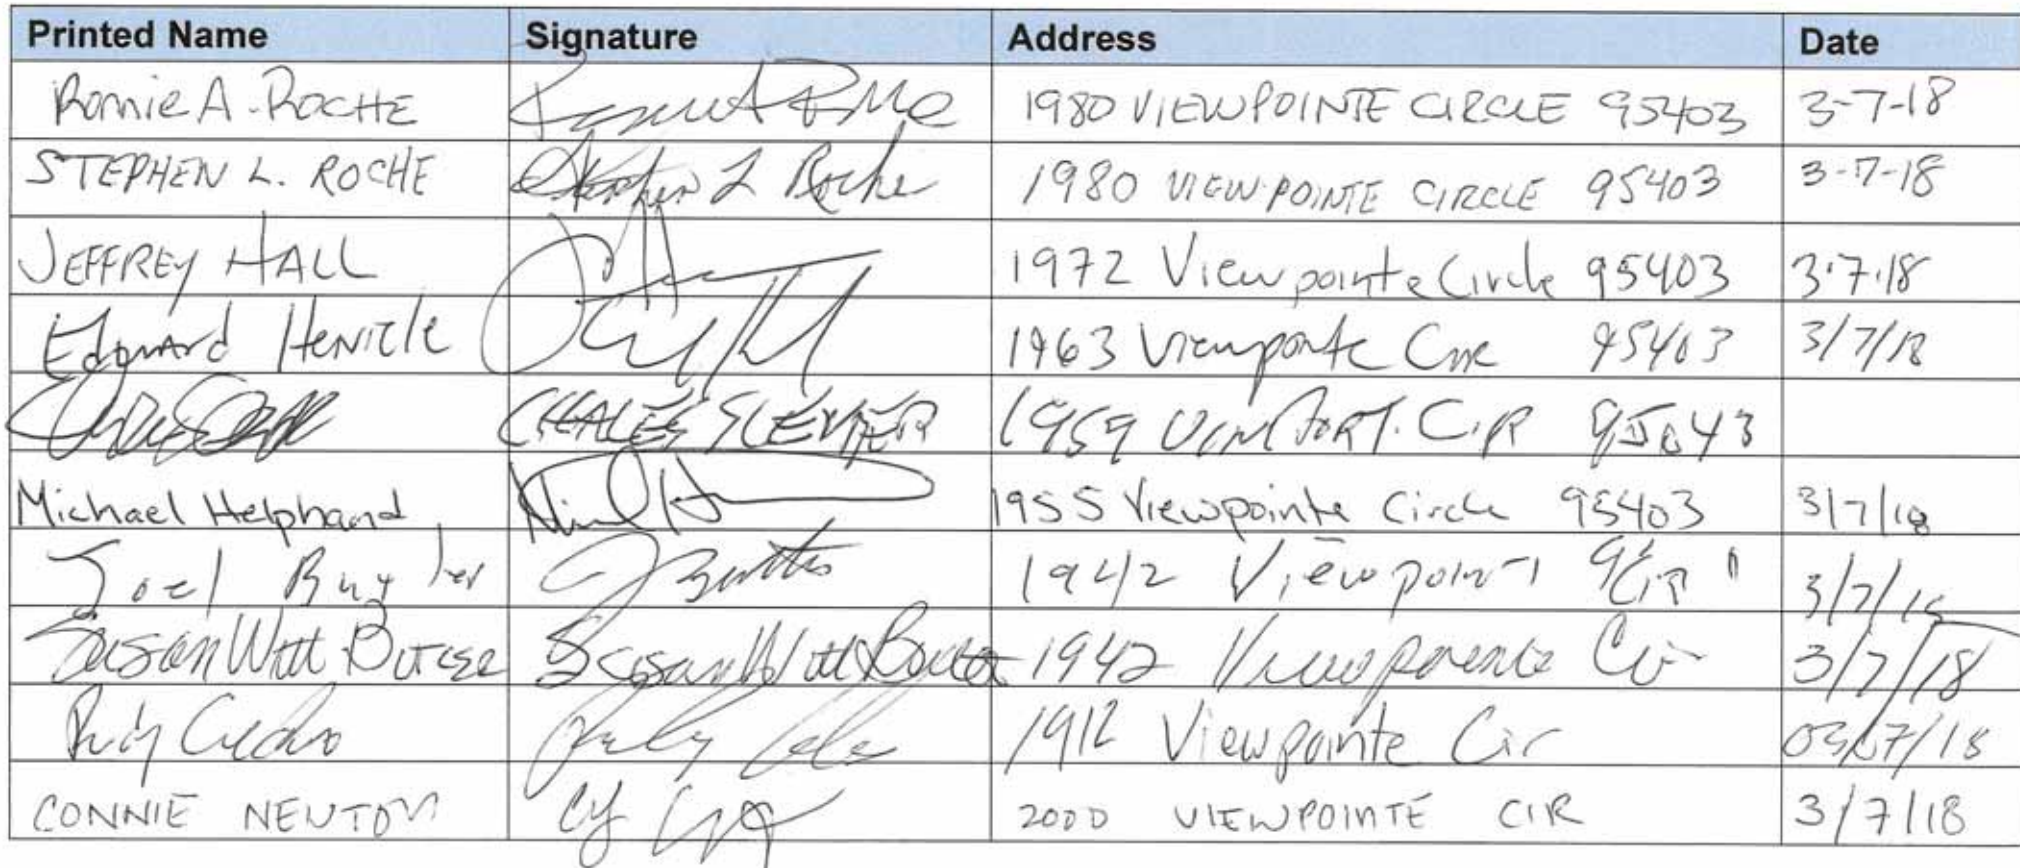 Printed Name Signature Address Date
Romie A. ROCHE 1980 VIEWPOINTE CIRCLE 95403 3-7-18
STEPHEN L. ROCHE Stephen L Roche 1980 VIEWPOINTE CIRCLE 95403 3-7-18
JEFFREY HALL 1972 Viewpointe Circle 95403 3.7.18
Edward 1963 Viewpointe 95403 3/7/18
CHALES 1959 95043
Michael Helphand 1955 Viewpointe Circle 95403 3/7/18
Joel 1942 Viewpoint Cir 3/7/18
Susan Witt Susan Witt 1942 Viewpointe Cir 3/7/18
1912 Viewpointe Cir 03/07/18
CONNIE NEWTON 2000 VIEWPOINTE CIR 3/7/18